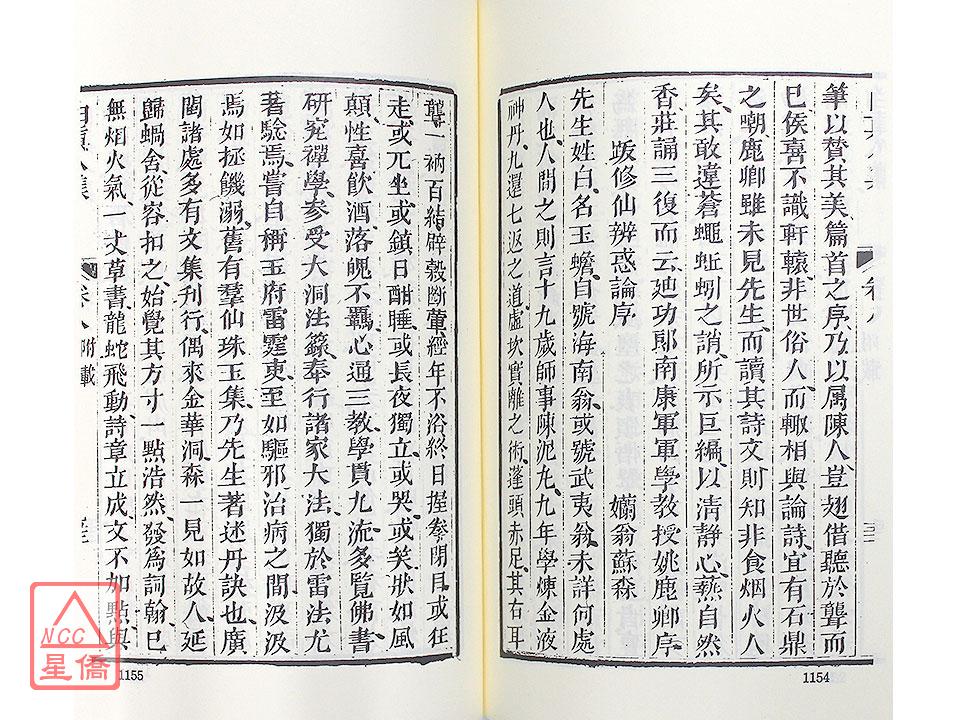 筆以贊其美篇首之序乃以厲陳人豈翅借聽於聾而
巳侯喜不識軒轅非世俗人而輙相與論詩宜有石鼎
之嘲鹿卿雖未見先生而讀其詩文則知非食烟火人
矣其敢違蒼蠅蚯蚓之誚所示巨編以淸靜心爇自然
香莊誦三復而云廸功郎南康軍軍學教授姚鹿卿序
跋修仙辨惑論序
嬾翁蘇森
先生姓白名玉蟾自號海南翁或號武夷翁未詳何處
人也人問之則言十九歲師事陳泥丸九年學煉金液
神丹九還七返之道虛坎實離之術蓬頭赤足其右耳
卷八
1154
聾一衲百結辟穀斷葷經年不浴終日握拳閉目或狂
走或兀坐或鎭日酣睡或長夜獨立或哭或笑狀如風
顛性喜飲酒落魄不羈心通三敎學貫九流多覽佛書
研究禪學參受大洞法籙奉行諸家大法獨於雷法尤
著驗焉嘗自稱玉府雷霆吏至如驅邪治病之間汲汲
焉如拯饑溺舊有羣仙珠玉集乃先生著述丹訣也廣
閩諸處多有文集刊行偶來金華洞森一見如故人延
歸蝸舍從容扣之始覺其方寸一點浩然發爲詞翰巳
無烟火氣一丈草書龍蛇飛動詩章立成文不加點與
白眞人集
卷八附載
1155
NCC
星僑